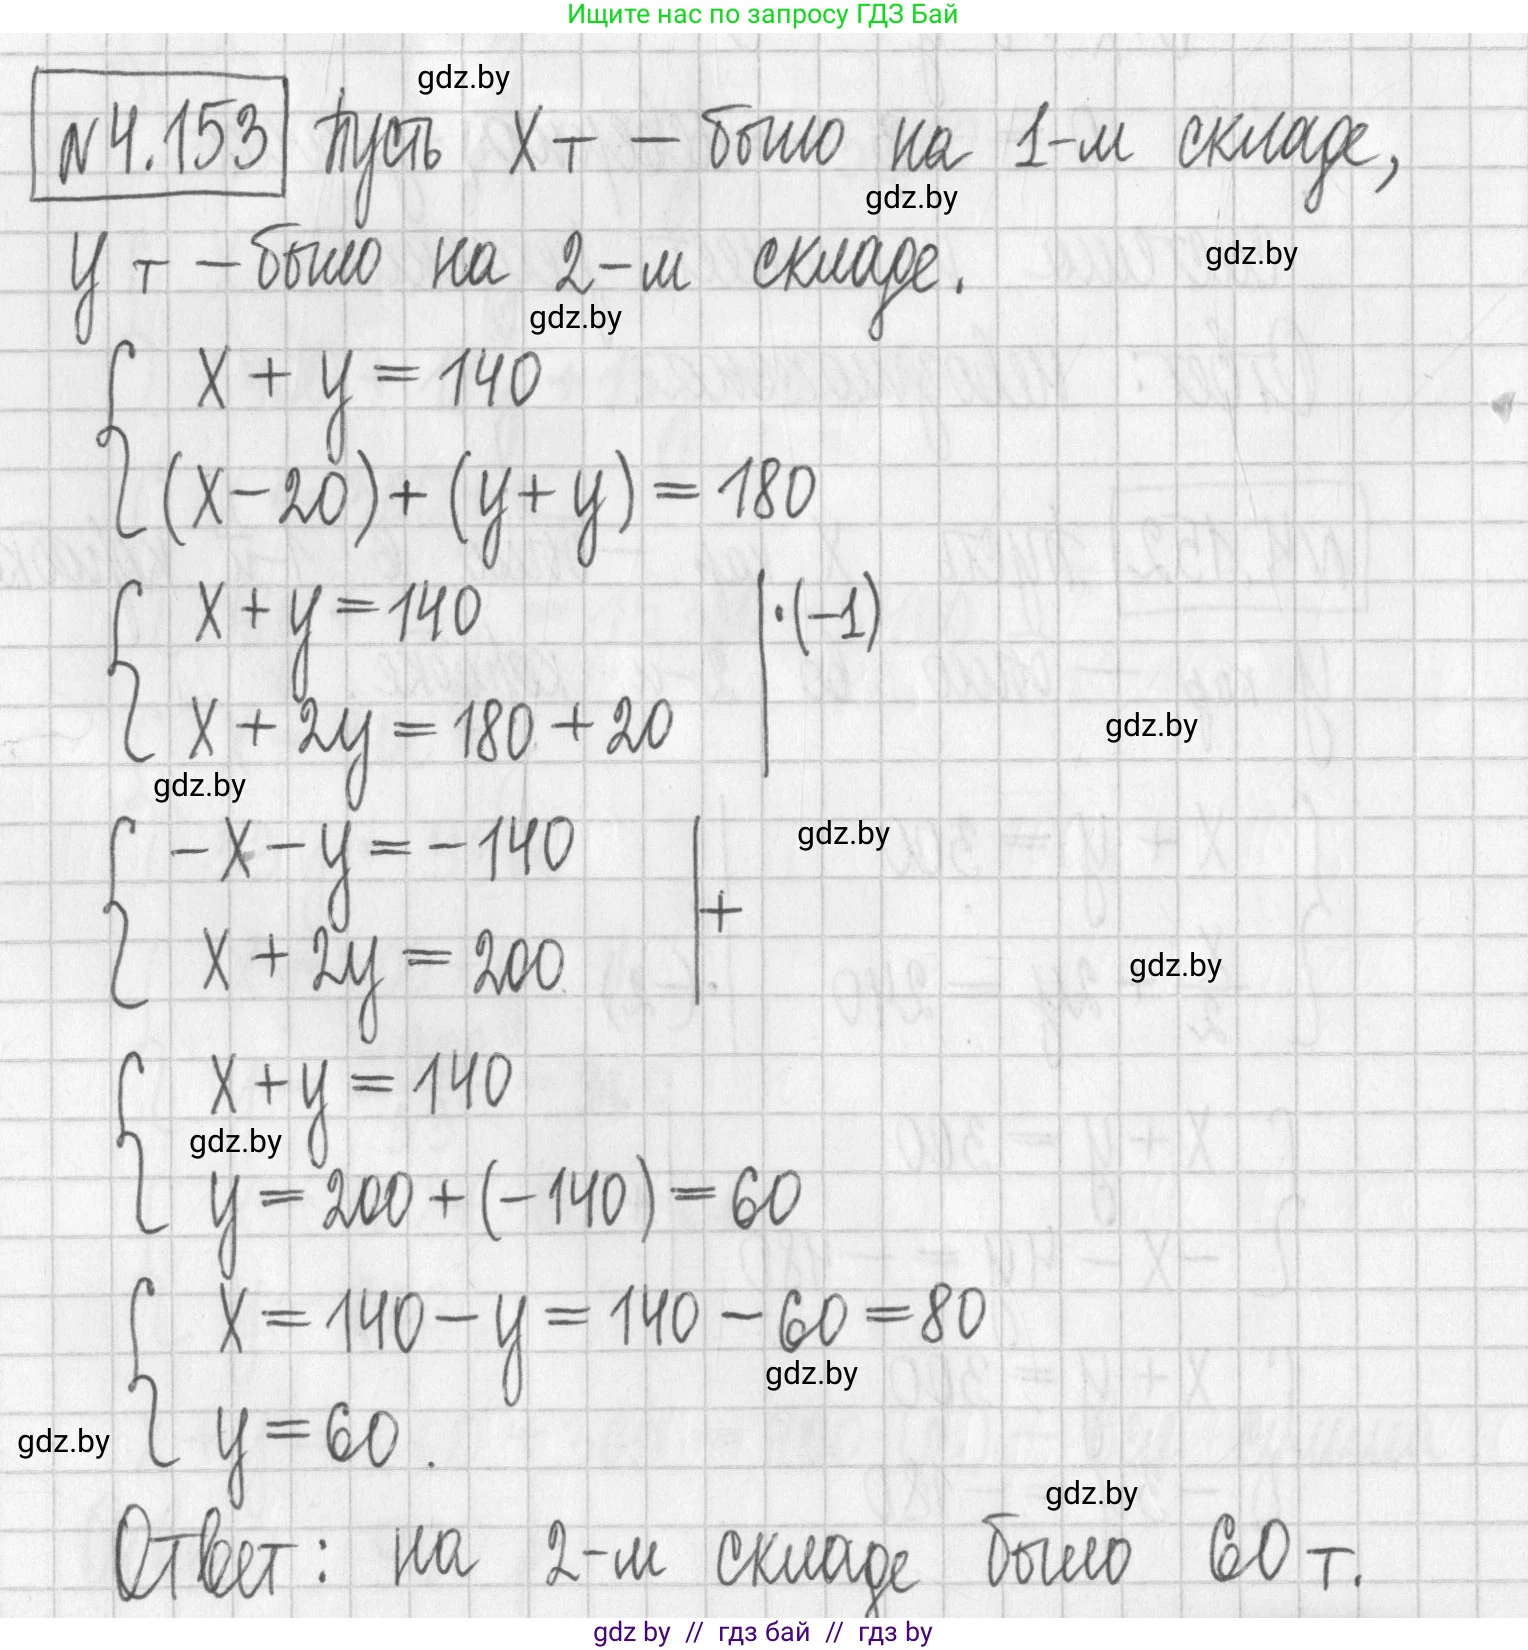 Ищите нас по запросу ГДЗ Бай
gdz.by
№4.153 Пусть x т — было на 1-м складе,
gdz.by
y т — было на 2-м складе.
gdz.by
gdz.by
x + y = 140
(x - 20) + (y + y) = 180
x + y = 140 | ·(-1)
x + 2y = 180 + 20
gdz.by
gdz.by
-x - y = -140
gdz.by
+
x + 2y = 200
gdz.by
x + y = 140
gdz.by
y = 200 + (-140) = 60
x = 140 - y = 140 - 60 = 80
gdz.by
y = 60.
gdz.by
gdz.by
Ответ: на 2-м складе было 60 т.
gdz by // гдз бай // гдз by